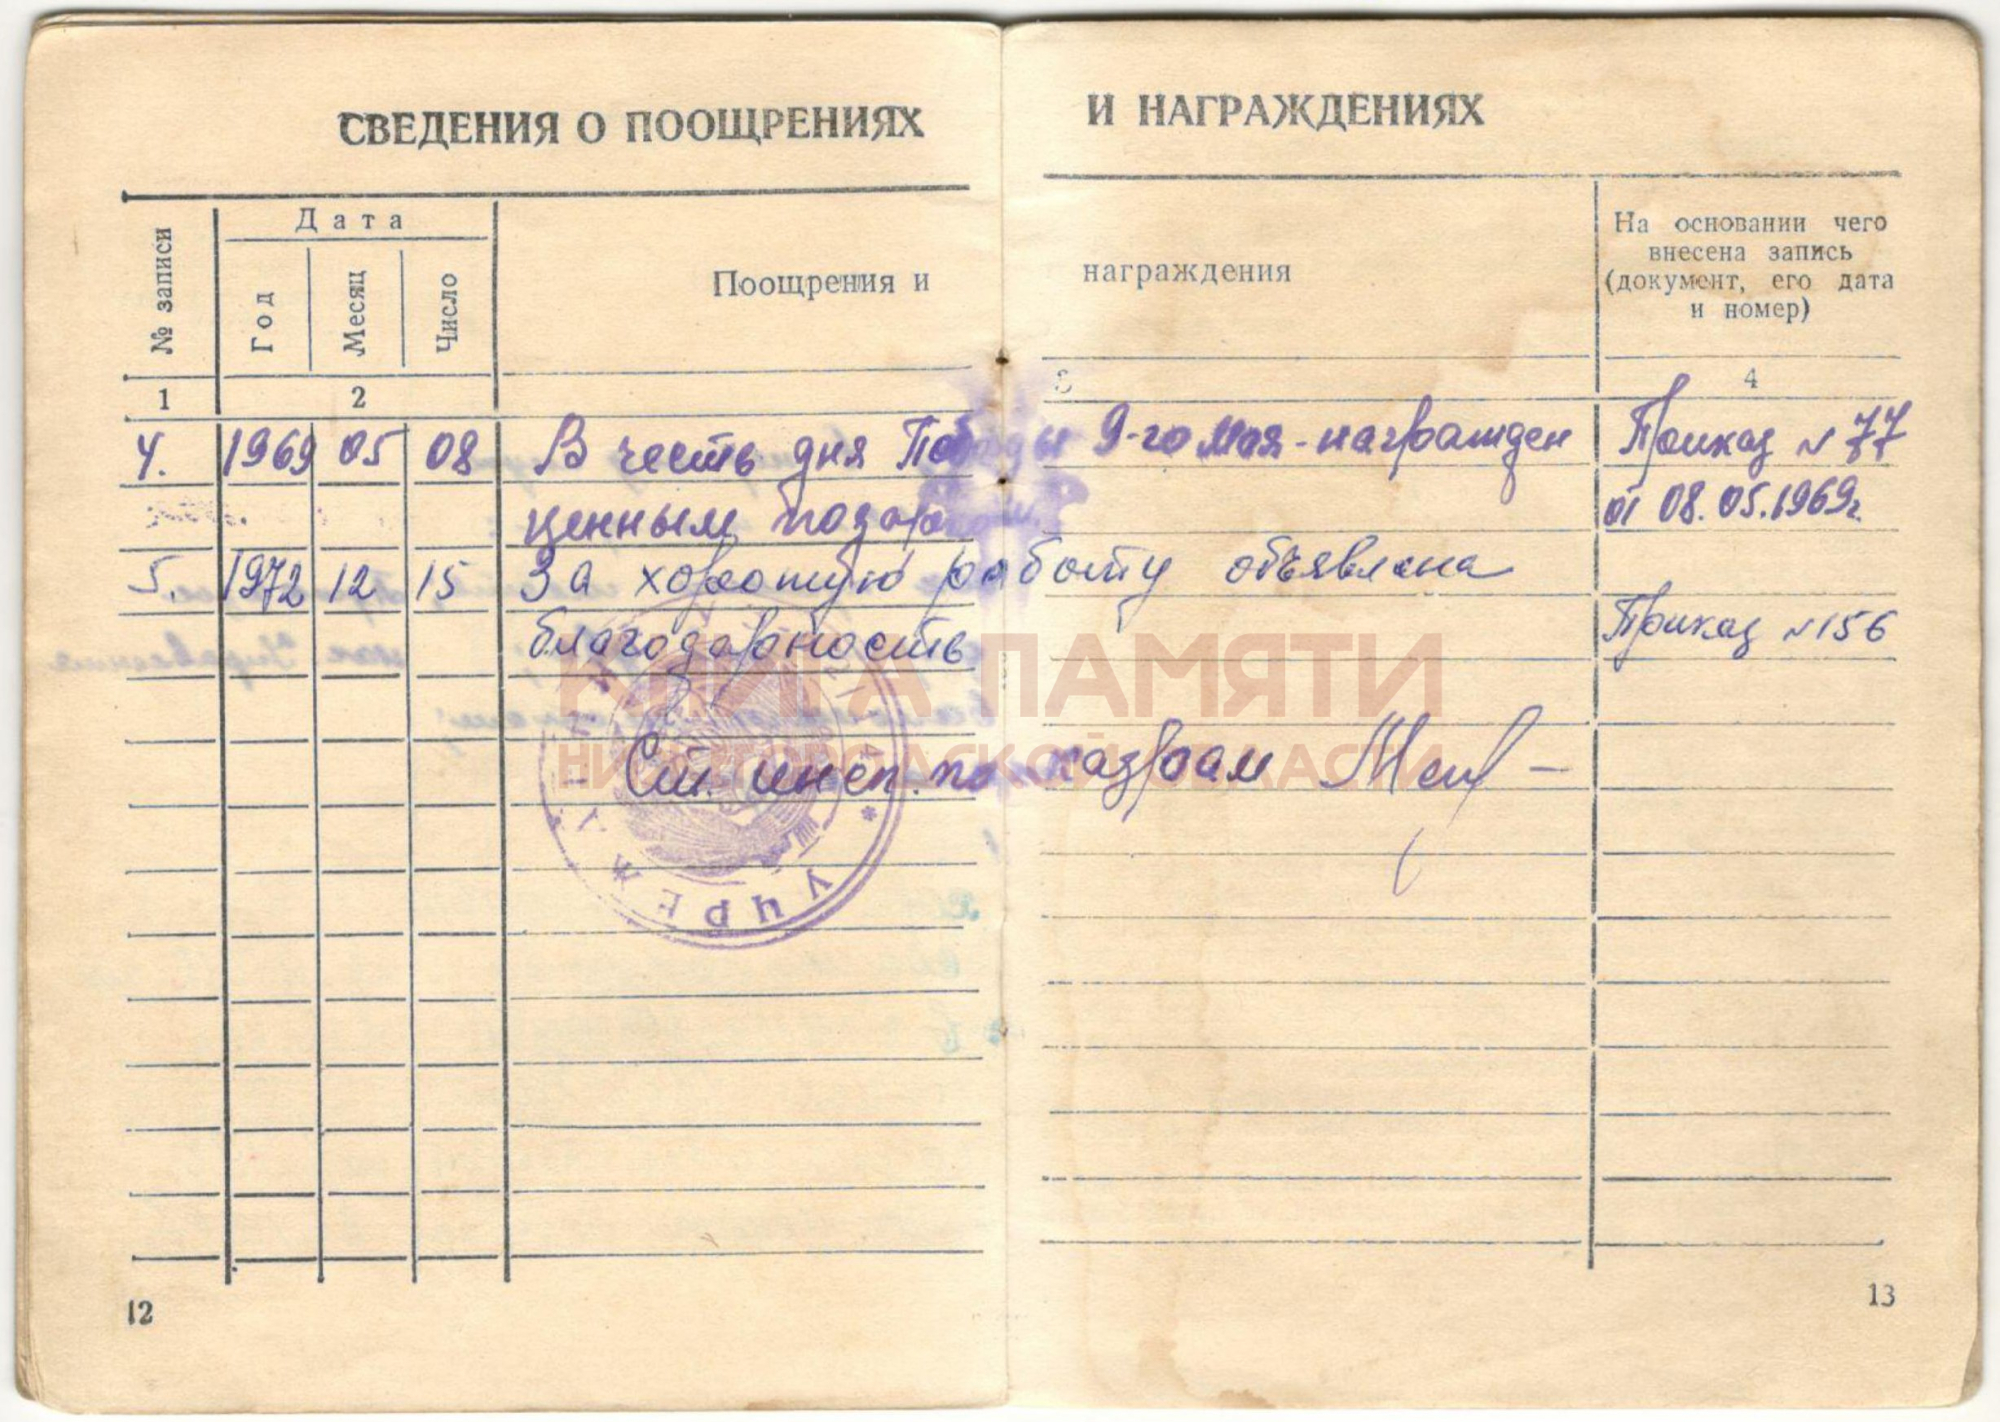 СВЕДЕНИЯ О ПООЩРЕНИЯХ И НАГРАЖДЕНИЯХ
№ записи
Дата
Год
Месяц
Число
Поощрения и награждения
На основании чего
внесена запись
(документ, его дата
и номер)
1 2 3 4
4. 1969 05 08 В честь дня Победы 9-го мая - награжден Приказ № 77
ценным подарком. от 08.05.1969г.
5. 1972 12 15 За хорошую работу объявлена
благодарность Приказ № 156
КНИГА ПАМЯТИ
НИЖЕГОРОДСКОЙ ОБЛАСТИ
Ст. инсп. по кадрам
12
13